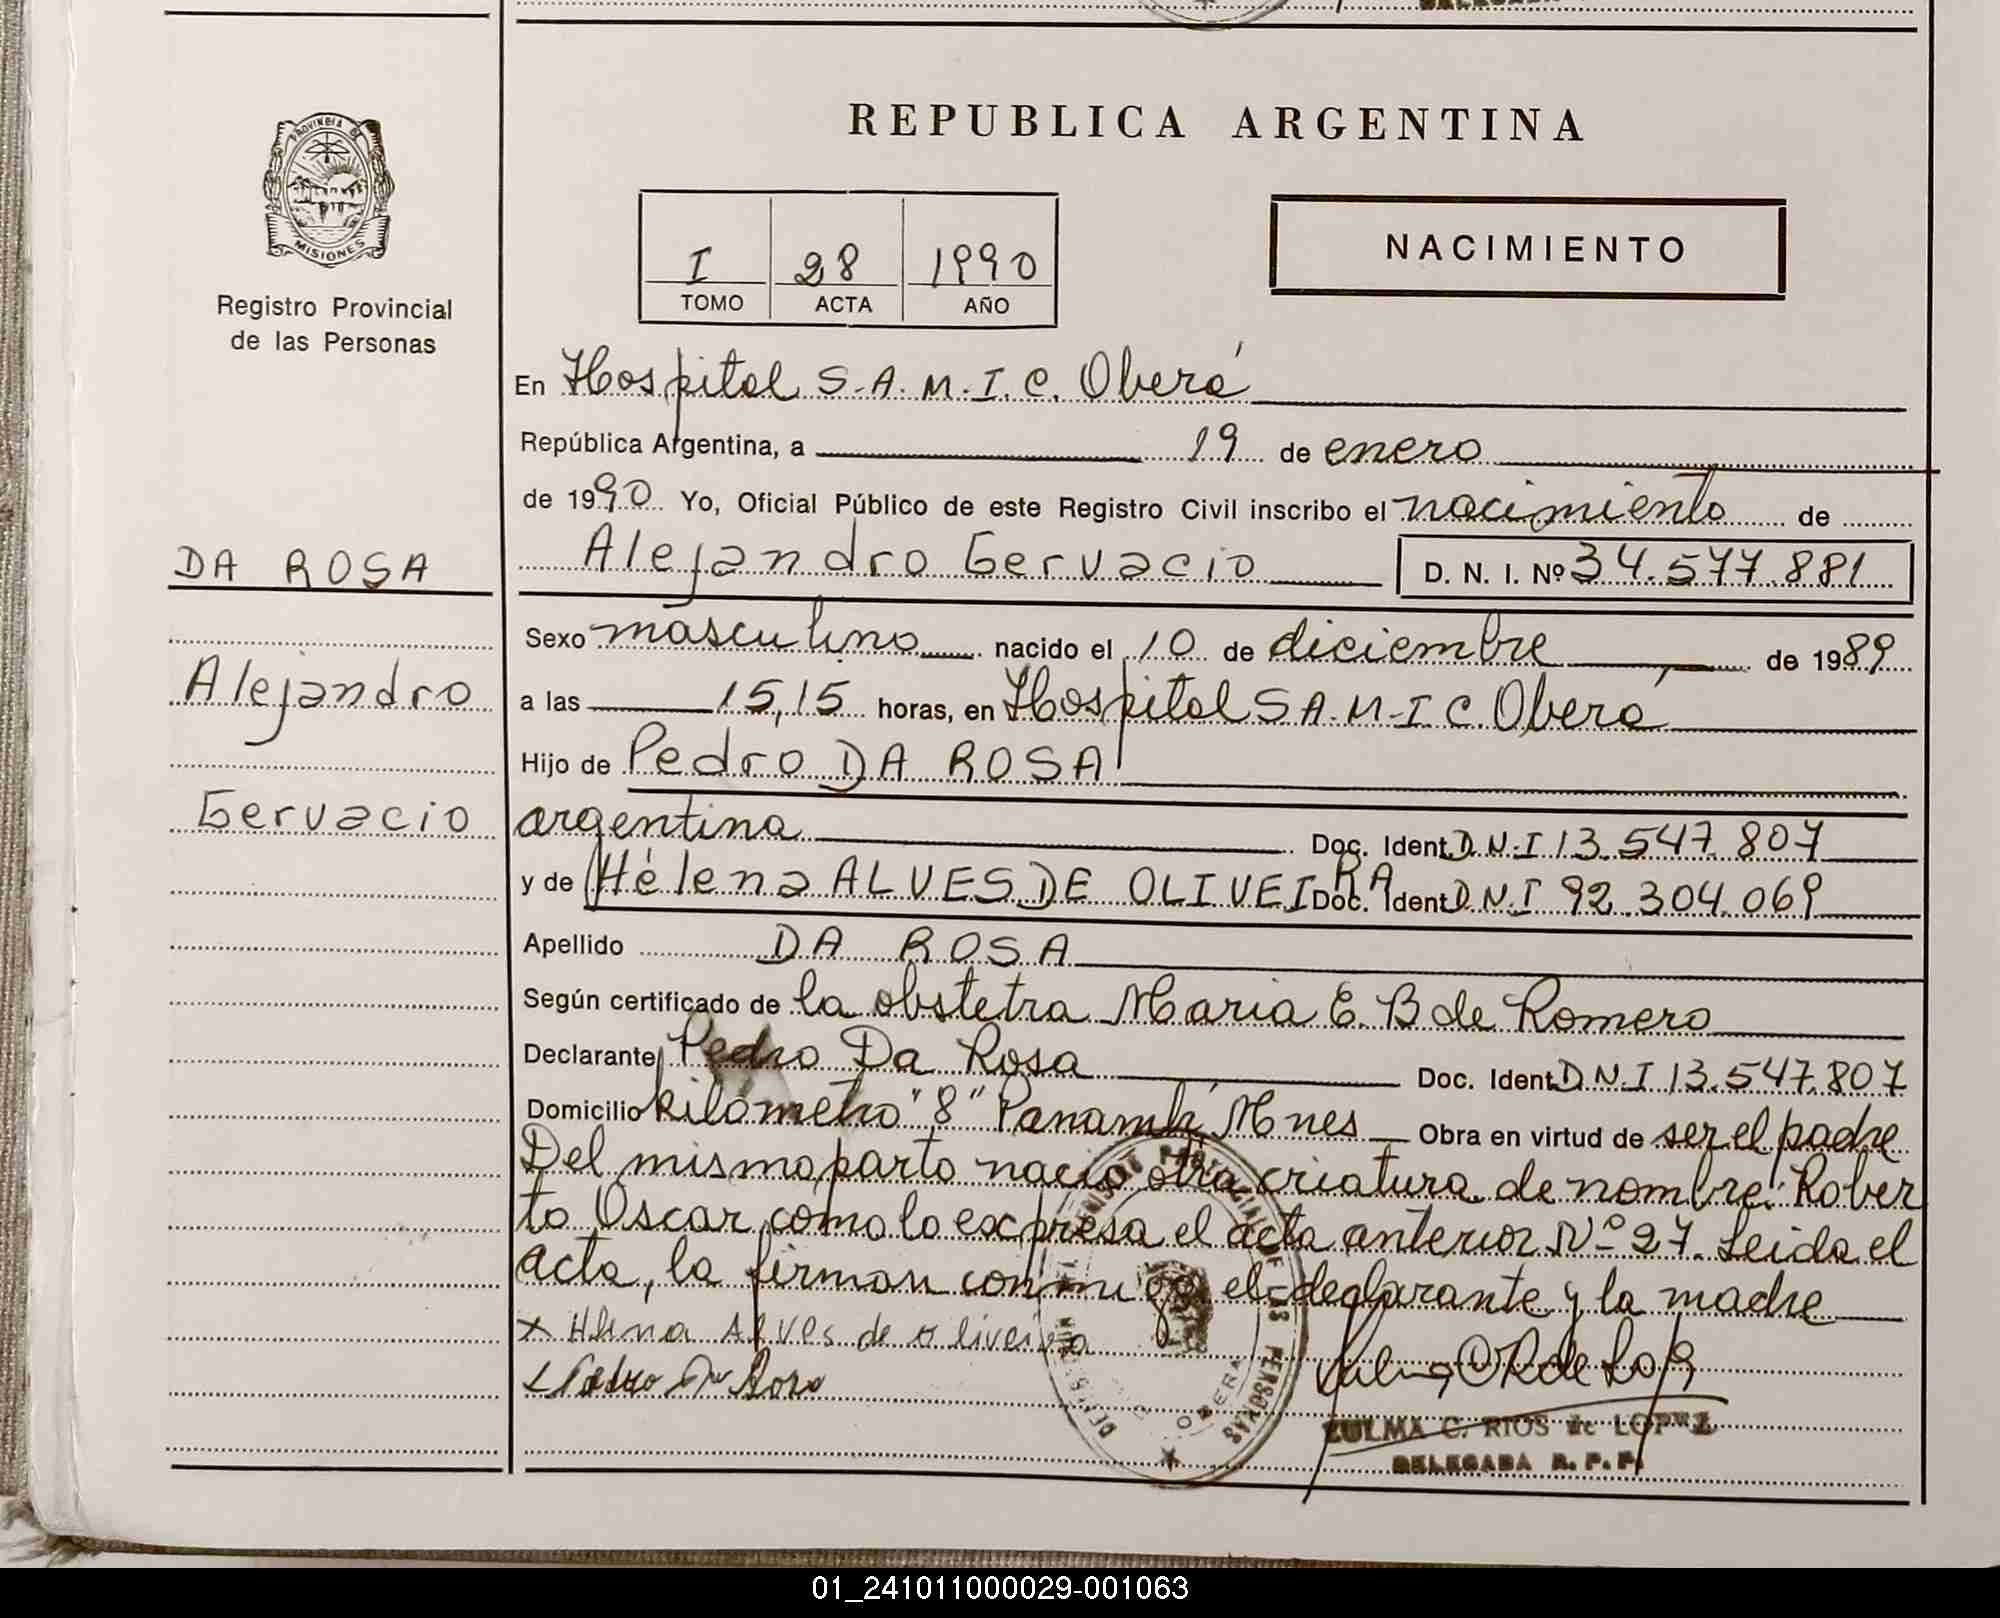 REPUBLICA ARGENTINA
PROVINCIA DE
MISIONES
Registro Provincial
de las Personas
I 28 1990
TOMO ACTA AÑO
NACIMIENTO
En Hospital S.A.M.I.C. Oberá
República Argentina, a 19 de enero
de 1990 Yo, Oficial Público de este Registro Civil inscribo el nacimiento de
DA ROSA
Alejandro Gervacio D. N. I. Nº 34.577.881
Sexo masculino nacido el 10 de diciembre de 1989
Alejandro
a las 15,15 horas, en Hospital S.A.M.I.C. Oberá
Hijo de Pedro DA ROSA
Gervacio
argentina Doc. Ident. D.N.I 13.547.807
y de Hélena ALVES DE OLIVEIRA Doc. Ident. D.N.I 92.304.069
Apellido DA ROSA
Según certificado de la obstetra Maria E. B de Romero
Declarante Pedro Da Rosa Doc. Ident. D.N.I 13.547.807
Domicilio kilómetro "8" Panambí Mnes Obra en virtud de ser el padre
Del mismo parto nació otra criatura de nombre: Rober
to Oscar, como lo expresa el acta anterior Nº 27. Leida el
acta, la firman conmigo el declarante y la madre
x Hlena Alves de oliveira
Pedro Da Rosa
OBERA
ZULMA C. RIOS de LOPEZ
DELEGADA R. P. P.
01_241011000029-001063